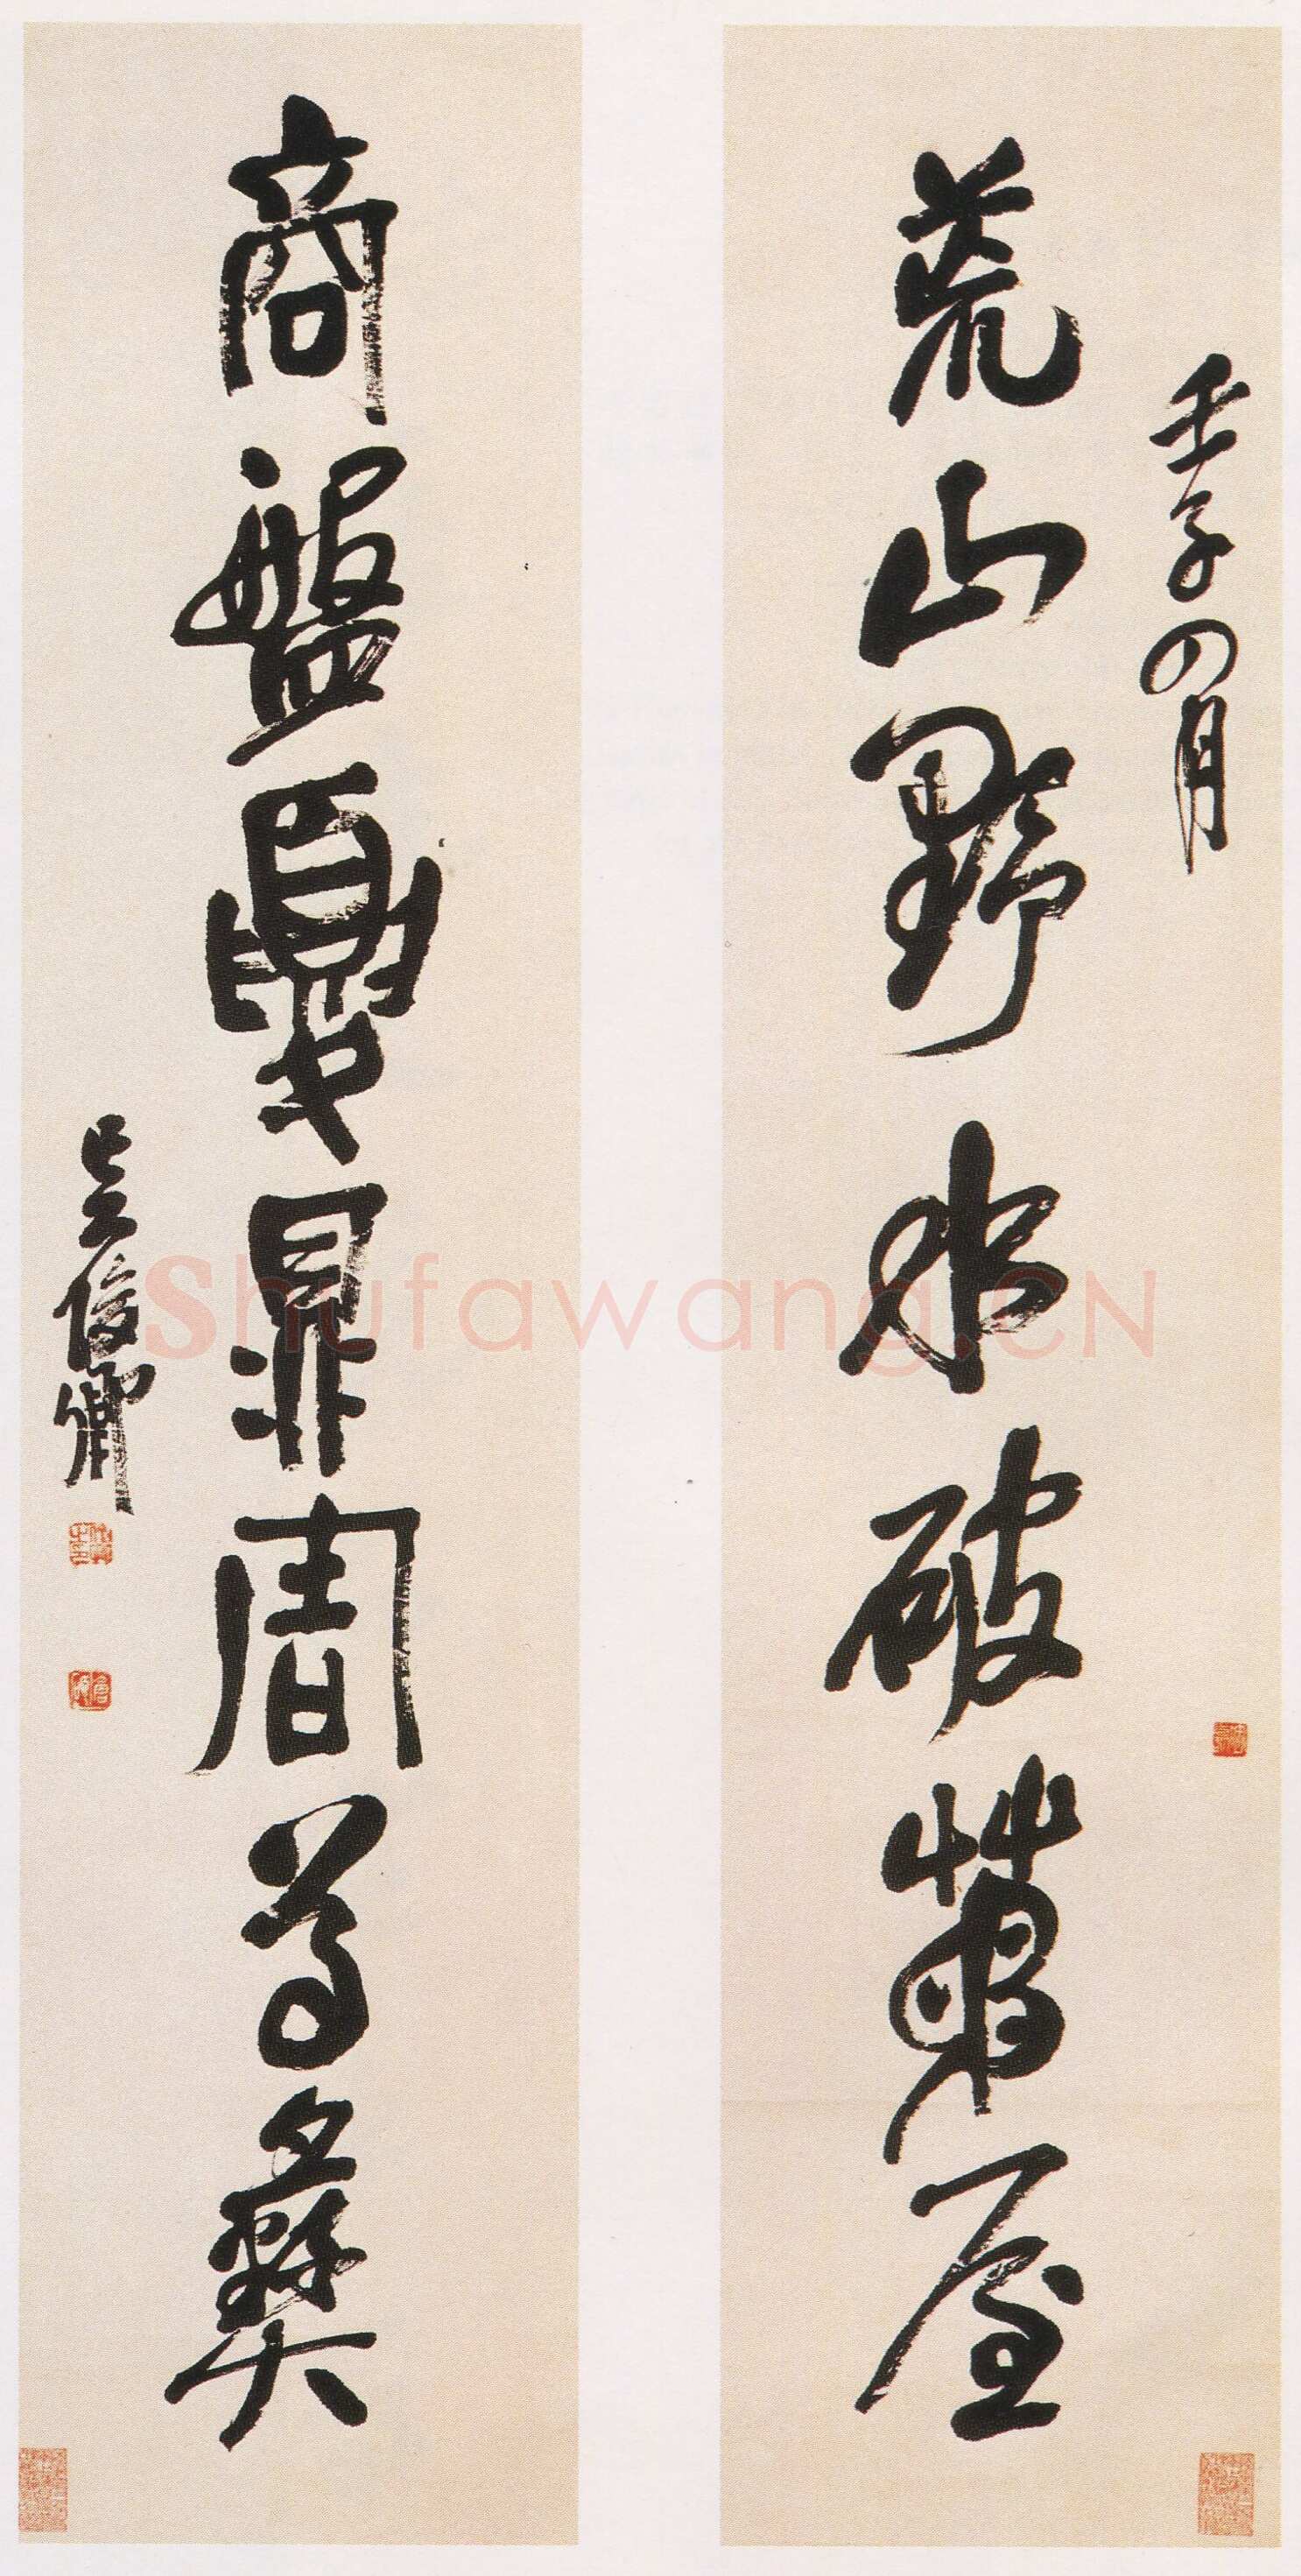 壬子四月
荒山野水破萧屋
商盤夏罪周尊彝
吴俊卿
Shufawang.CN